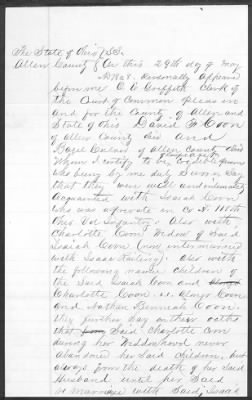 The State of Ohio } SS.
Allen County } On this 29th day of May
Personally appeared
before me C. E. Griffith Clerk of
the Court of Common pleas in
and for the County of Allen and
State of Ohio David H Coon
of Allen County Ohio and
of Allen County Ohio
whom I certify to be credible
who being by me duly Sworn Say
that they were well and intimately
Acquainted with Isaiah Coon,
who was a private in Co.
Ohio Vol Infantry. Also with
Charlotte Coon Widow of Said
Isaiah Coon (now intermarried
with Isaac ). Also with
the following named children of
the Said Isaiah Coon and
Charlotte Coon. Henry Coon
and Nathan Coon.
they further Say on their oaths
that Said Charlotte Coon
during her Widowhood never
abandoned her Said children, but
always from the death of her Said
Husband until her Said
marriage with Said Isaac